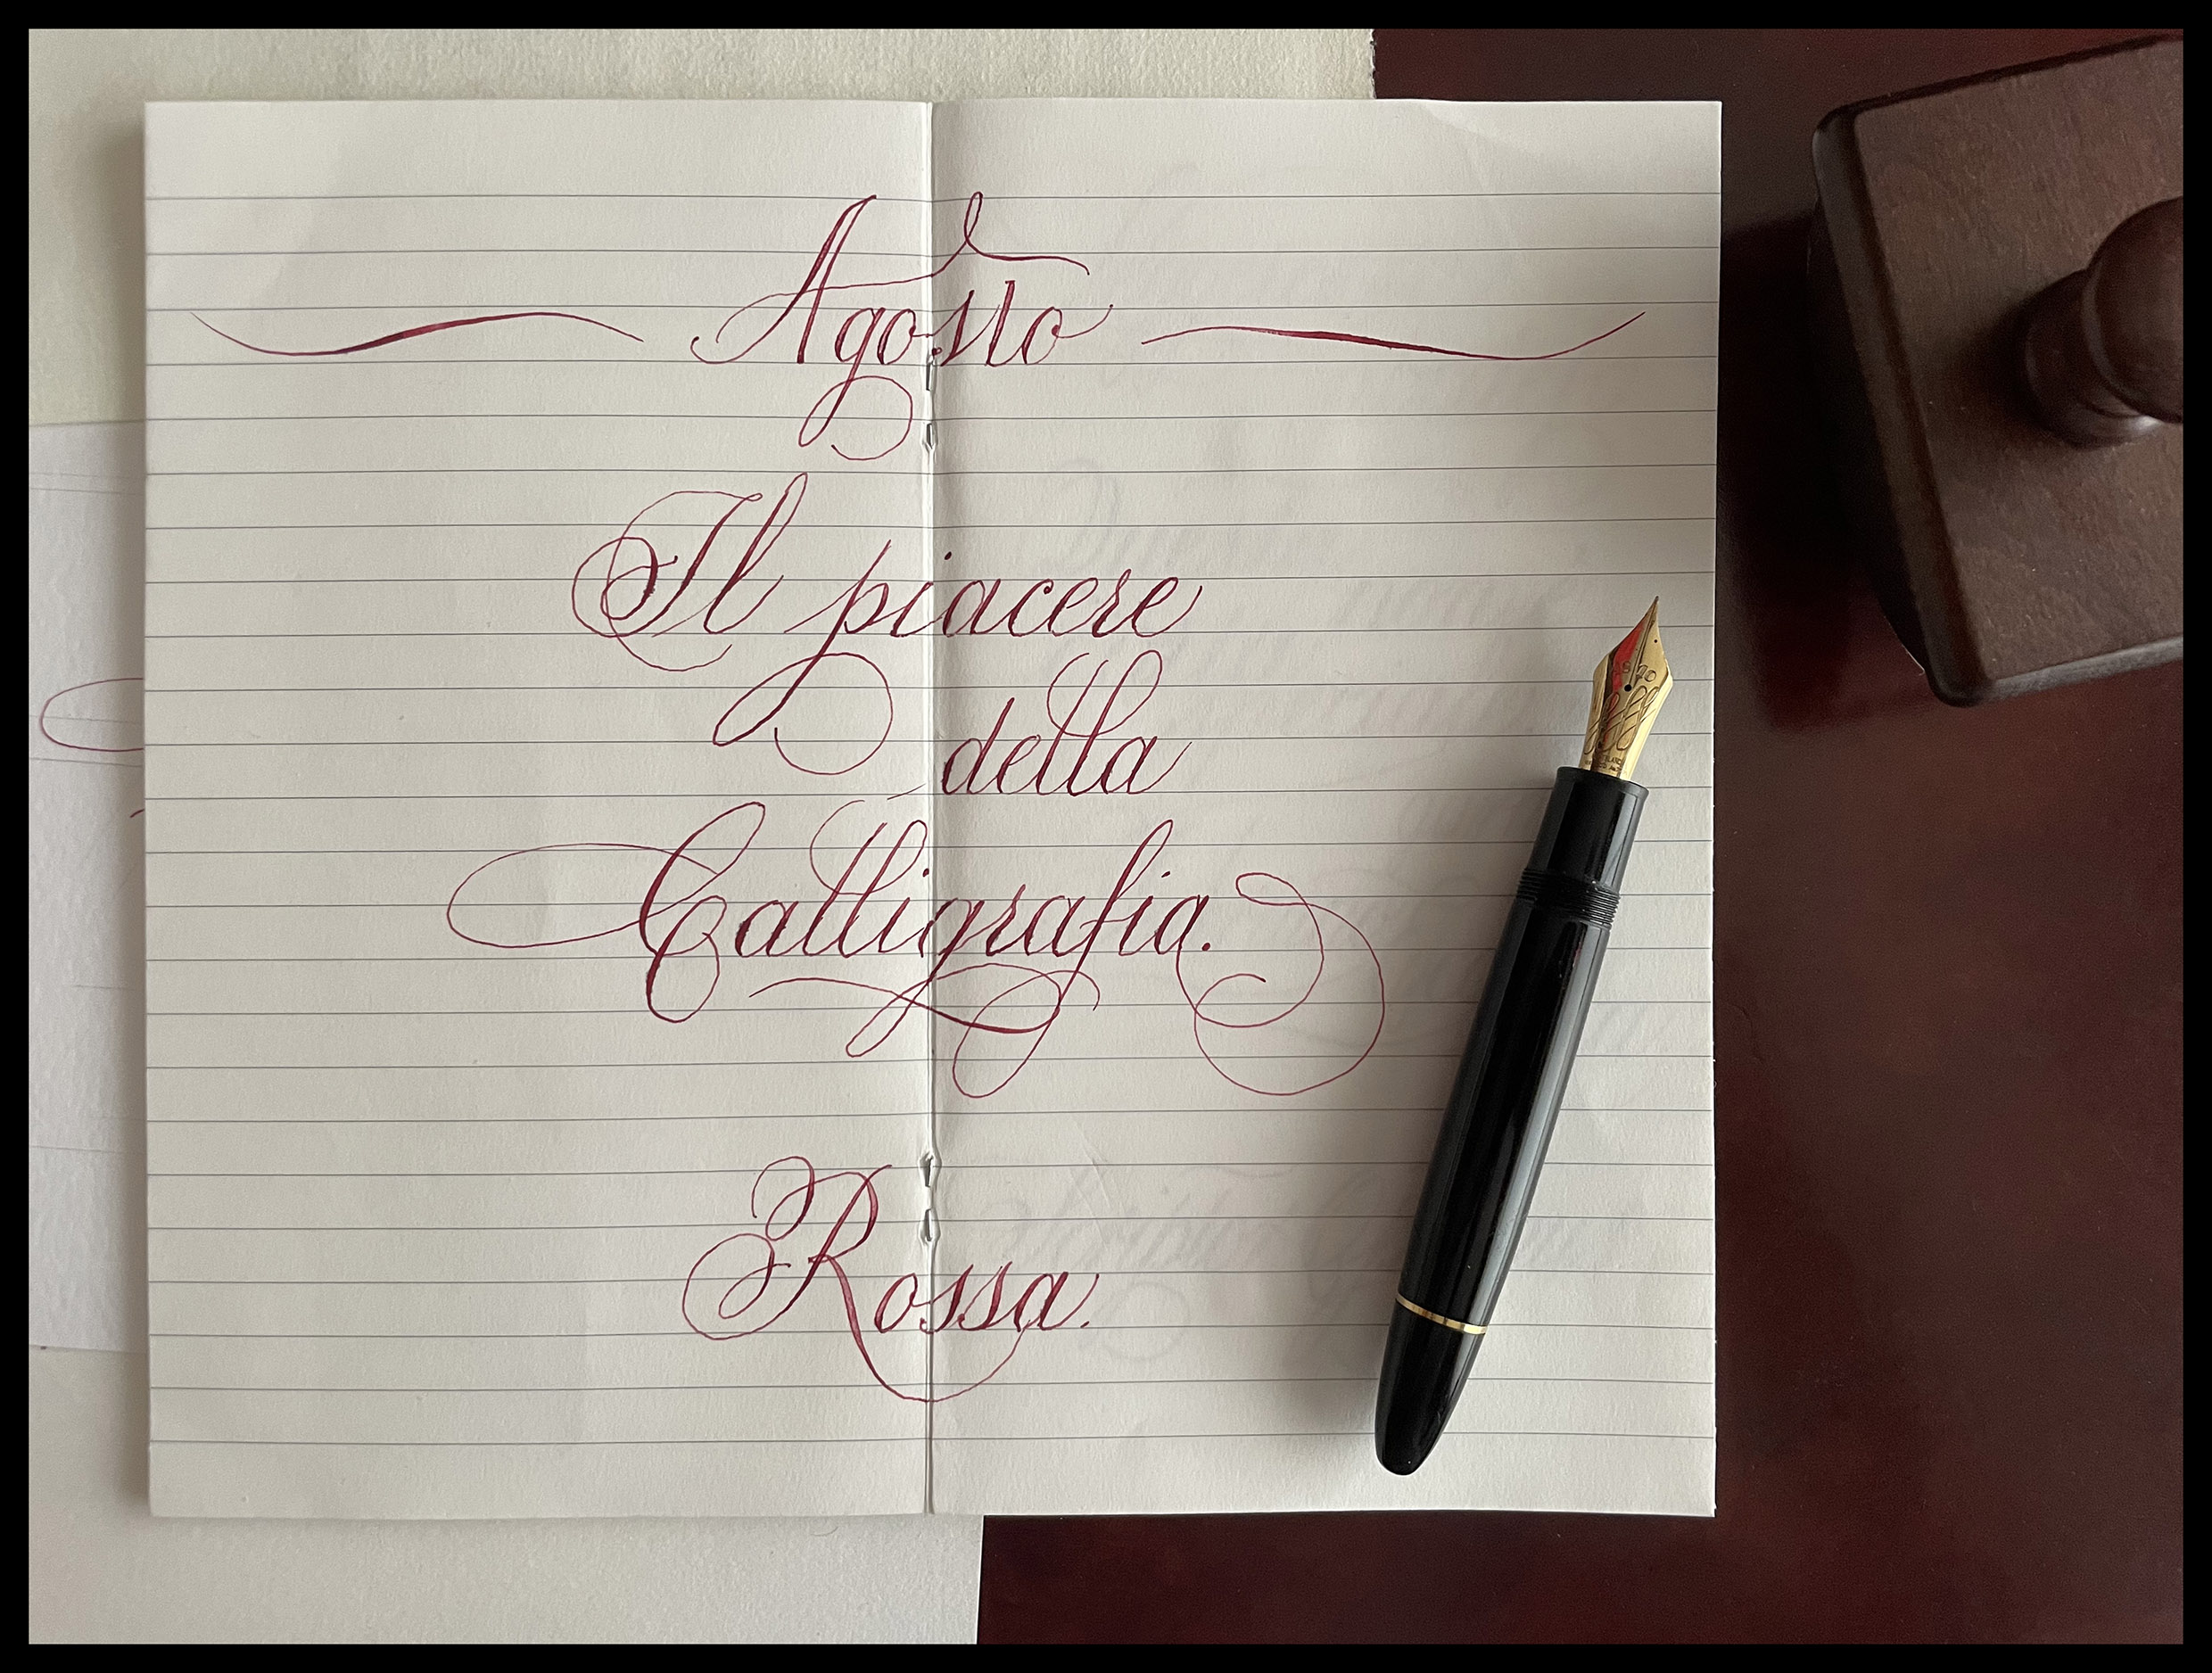 Agosto
Il piacere
della
Calligrafia.
Rossa.